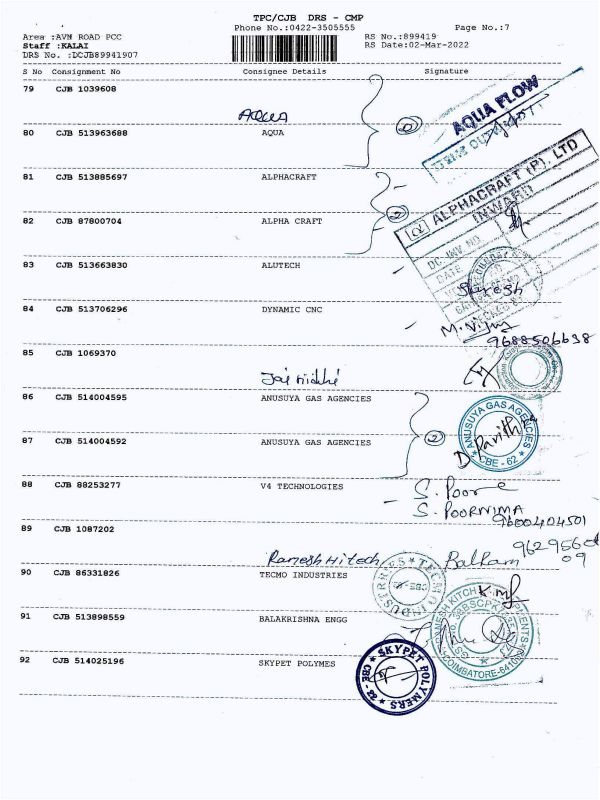 TPC/CJB DRS - CMP
Phone No.:0422-3505555
Page No.:7
Area :AVM ROAD PCC
Staff :KALAI
DRS No. :DCJB89941907
RS No.:899419
RS Date:02-Mar-2022
S No Consignment No Consignee Details Signature
79 CJB 1039608
AQUA
80 CJB 513963688 AQUA
2
AQUA FLOW
81 CJB 513885697 ALPHACRAFT
82 CJB 87800704 ALPHA CRAFT
2
ALPHACRAFT (P). LTD
INWARD
DC-INV NO
DATE
83 CJB 513663830 ALUTECH
Suresh
84 CJB 513706296 DYNAMIC CNC
M. Vijay
9688506638
85 CJB 1069370
Jai nidhi
86 CJB 514004595 ANUSUYA GAS AGENCIES
87 CJB 514004592 ANUSUYA GAS AGENCIES
2
ANUSUYA GAS AGENCIES
CBE - 62
D. Parith
88 CJB 88253277 V4 TECHNOLOGIES
S. Poor
S. POORNIMA
9600404501
89 CJB 1087202
Ramesh Hitech
Balram
962956
09
90 CJB 86331826 TECMO INDUSTRIES
TECMO INDUSTRIES
91 CJB 513898559 BALAKRISHNA ENGG
COIMBATORE-6410
92 CJB 514025196 SKYPET POLYMES
SKYPET POLYMERS
CBE - 22